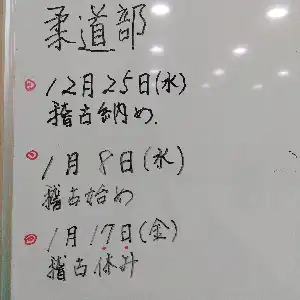 柔道部
12月25日(水)
稽古納め.
1月8日(水)
稽古始め
1月17日(金)
稽古休み